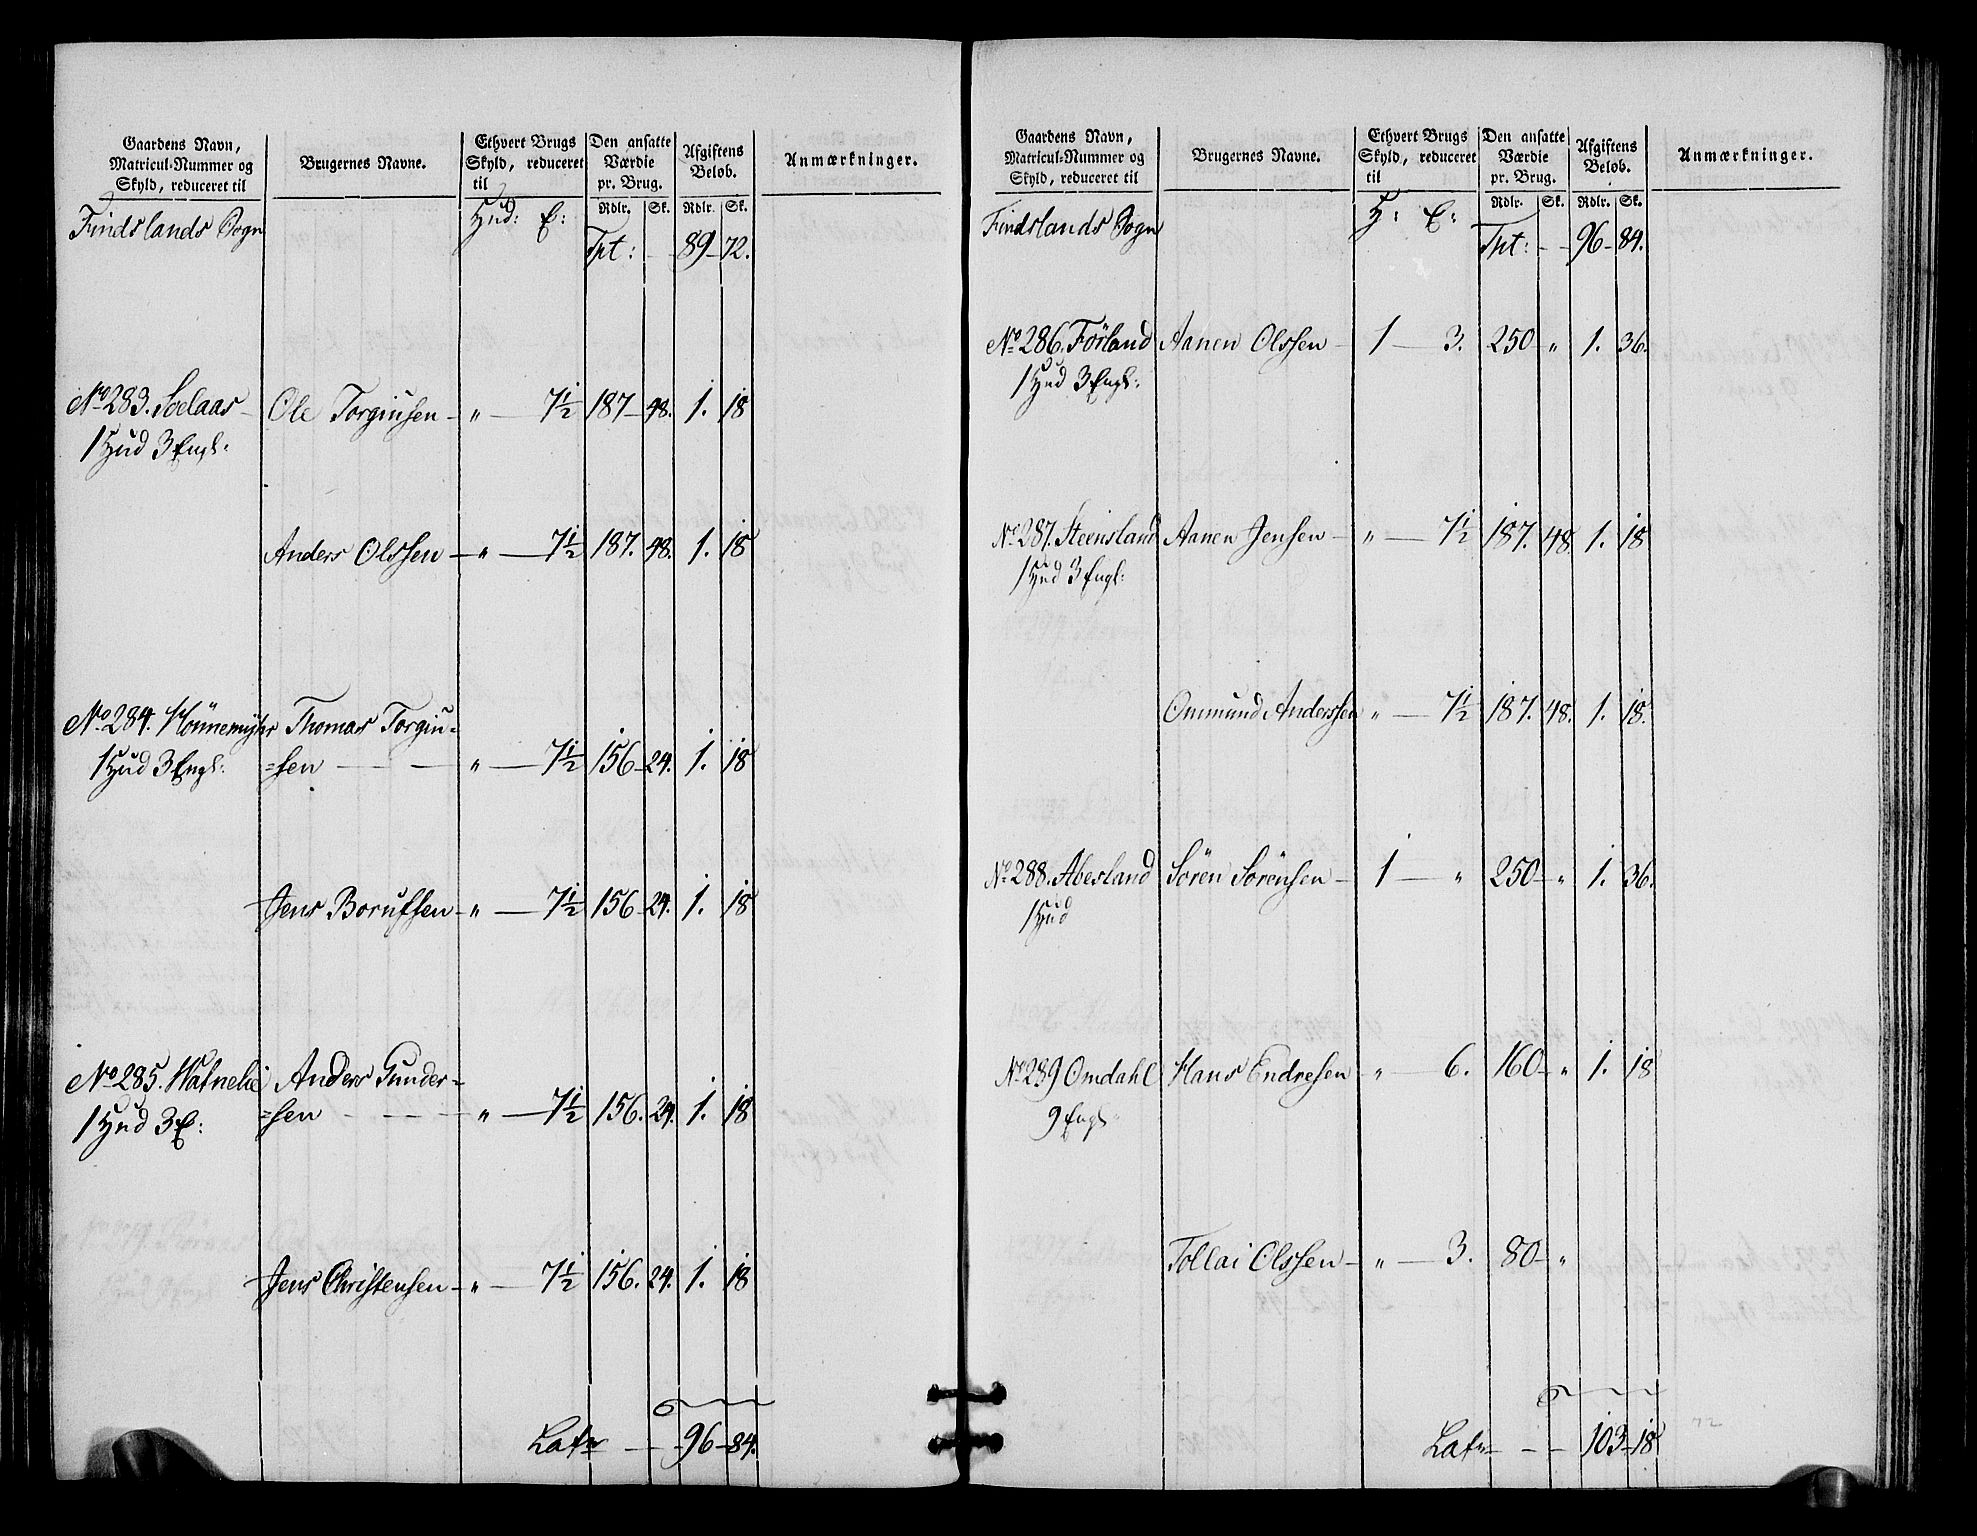 Gaardens Navn, Matricul-Nummer og Skyld, reduceret til | Brugernes Navne. | Ethvert Brugs Skyld, reduceret til | Den ansatte Værdie pr. Brug. | Afgiftens Beløb. | Anmærkninger.
Rdlr. Sk. Rdlr. Sk.
Findslands Sogn Hud: E:
Tpt: 89 - 72.
No 283. Soelaas Ole Torgiusen - „ - 7½ 187 - 48. 1. 18
1 Hud 3 Engl:
Anders Olssen - „ - 7½ 187. 48. 1. 18
No 284. Hönnemyhr Thomas Torgiu=
1 Hud 3 Engl: =sen - „ - 7½ 156 - 24. 1. 18
Jens Borufsen - „ - 7½ 156 - 24. 1. 18
No 285. Watnelie Anders Gunder=
1 Hud 3 E: =sen - „ - 7½ 156. 24. 1. 18
Jens Christensen - „ - 7½ 156. 24. 1. 18
Latr - - 96 - 84.
Gaardens Navn, Matricul-Nummer og Skyld, reduceret til | Brugernes Navne. | Ethvert Brugs Skyld, reduceret til | Den ansatte Værdie pr. Brug. | Afgiftens Beløb. | Anmærkninger.
Rdlr. Sk. Rdlr. Sk.
Findslands Sogn H: E:
Tpt: - - 96 - 84.
No 286. Förland Aanen Olssen - 1 - 3. 250 - „ 1. 36.
1 Hud 3 Engl:
No 287. Steensland Aanen Jensen - „ - 7½ 187. 48. 1. 18
1 Hud 3 Engl:
Ommund Anderssen „ - 7½ 187. 48. 1. 18.
No 288. Abesland Sören Sörensen - 1 - „ 250 - „ 1. 36.
1 Hud
No 289 Omdahl Hans Endresen „ - 6. 160 - „ 1. 18
9 Engl:
Tollai Olssen - „ - 3. 80 - „
Latr - - 103 - 18